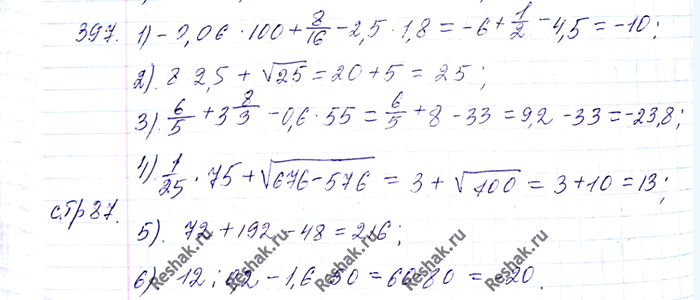 397. 1) -0,06 · 100 + 8/16 - 2,5 · 1,8 = -6 + 1/2 - 4,5 = -10;
2). 8 2,5 + √25 = 20 + 5 = 25;
3). 6/5 + 3 8/3 - 0,6 · 55 = 6/5 + 8 - 33 = 9,2 - 33 = -23,8;
4) 1/25 · 75 + √676-576 = 3 + √100 = 3 + 10 = 13;
стр 87.
5). 72 + 192 - 48 = 216;
6) 12 : - 1,6 · 50 = 80 = -20.
Reshak.ru Reshak.ru Reshak.ru Reshak.ru Reshak.ru Reshak.ru